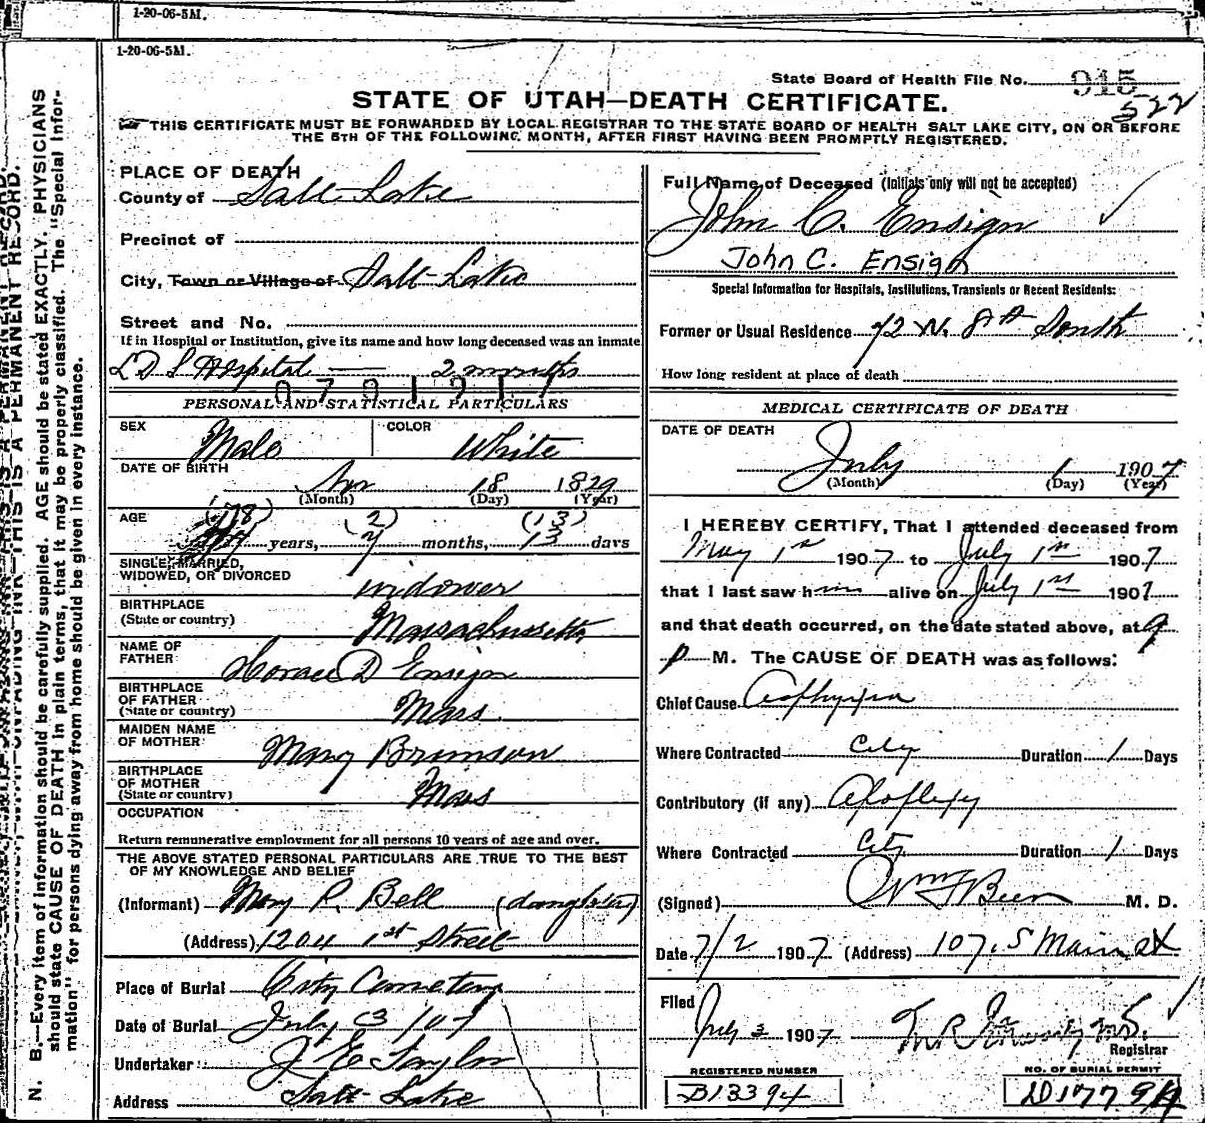 1-20-06-5M.
1-20-06-5M.
State Board of Health File No. 915
522
STATE OF UTAH—DEATH CERTIFICATE.
THIS CERTIFICATE MUST BE FORWARDED BY LOCAL REGISTRAR TO THE STATE BOARD OF HEALTH SALT LAKE CITY, ON OR BEFORE
THE 5TH OF THE FOLLOWING MONTH, AFTER FIRST HAVING BEEN PROMPTLY REGISTERED.
PLACE OF DEATH
County of Salt Lake
Precinct of
City, Town or Village of Salt Lake
Street and No.
If in Hospital or Institution, give its name and how long deceased was an inmate
L D S Hospital — 2 months
PERSONAL AND STATISTICAL PARTICULARS
SEX Male COLOR White
DATE OF BIRTH
Apr 18 1829
(Month) (Day) (Year)
AGE (78) (2) (13)
years, months, 13 days
SINGLE, MARRIED,
WIDOWED, OR DIVORCED
widower
BIRTHPLACE
(State or country) Massachusetts
NAME OF
FATHER Horace D Ensign
BIRTHPLACE
OF FATHER
(State or country) Mass
MAIDEN NAME
OF MOTHER Mary Brunson
BIRTHPLACE
OF MOTHER
(State or country) Mass
OCCUPATION
Return remunerative employment for all persons 10 years of age and over.
THE ABOVE STATED PERSONAL PARTICULARS ARE TRUE TO THE BEST
OF MY KNOWLEDGE AND BELIEF
(Informant) Mary R. Bell (daughter)
(Address) 1204 1st Street
Place of Burial City Cemetery
Date of Burial July 3 / 07
Undertaker: J E Taylor
Address Salt Lake
Full Name of Deceased (Initials only will not be accepted)
John C. Ensign
John C. Ensign
Special Information for Hospitals, Institutions, Transients or Recent Residents:
Former or Usual Residence 72 W. 8th South
How long resident at place of death
MEDICAL CERTIFICATE OF DEATH
DATE OF DEATH
July 1 1907
(Month) (Day) (Year)
I HEREBY CERTIFY, That I attended deceased from
May 1st 1907 to July 1st 1907
that I last saw him alive on July 1st 1907
and that death occurred, on the date stated above, at 9
P M. The CAUSE OF DEATH was as follows:
Chief Cause Asphyxia
Where Contracted City Duration 1 Days
Contributory (if any) Apoplexy
Where Contracted City Duration 1 Days
(Signed) M. D.
Date 7/2 1907 (Address) 107. S Main st
Filed
July 3 1907
Registrar
REGISTERED NUMBER
B13394
NO. OF BURIAL PERMIT
D1779A
N. B.—Every item of information should be carefully supplied. AGE should be stated EXACTLY. PHYSICIANS
should state CAUSE OF DEATH in plain terms, that it may be properly classified. The "Special Infor-
mation" for persons dying away from home should be given in every instance.
THIS IS A PERMANENT RECORD.